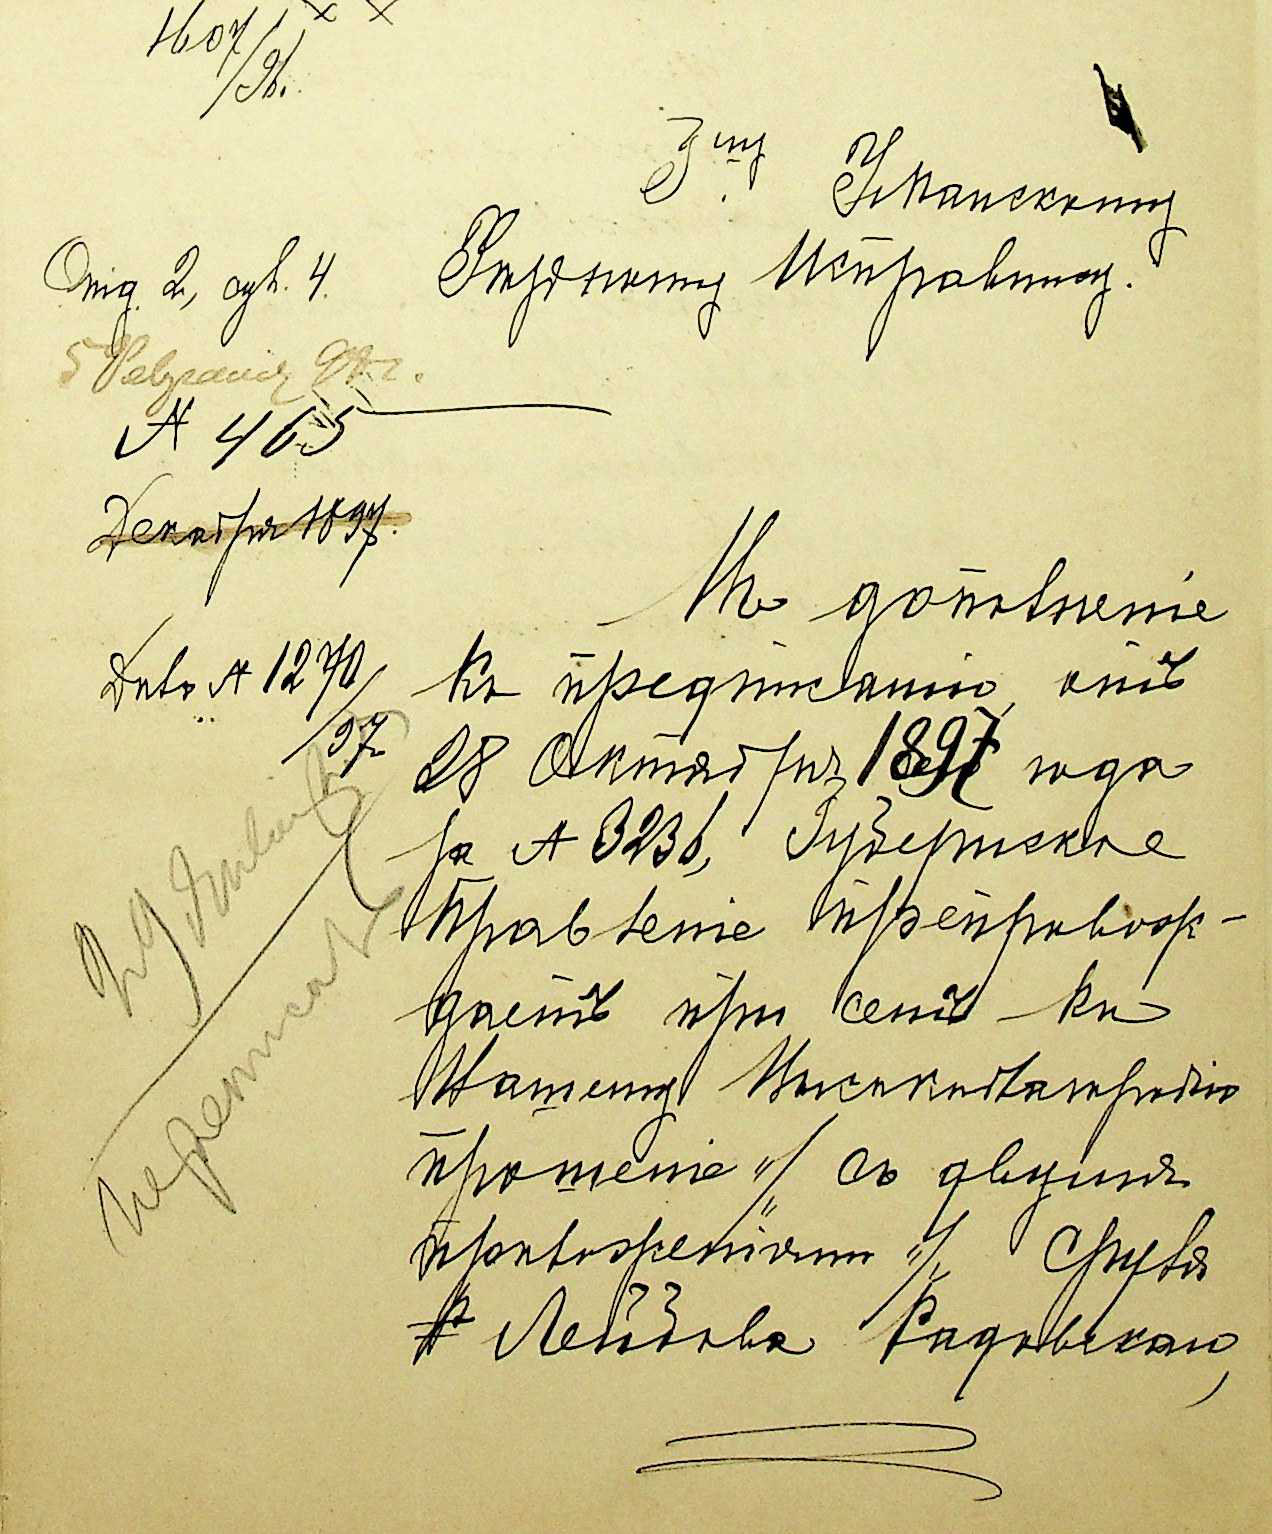 1607
/96.
Г-ну Уманскому
Уѣздному Исправнику.
Отд. 2, ст. 4.
5 Февраля 98 г.
№ 465
Декабря 1897.
Дѣло № 1270
/97
Въ дополненіе
къ предписанію, отъ
28 Октября 1897 года
за № 3236, Губернское
Правленіе препровож-
даетъ при семъ къ
Вашему Высокоблагородію
прошеніе "/" съ двумя
приложеніями "/" Сруля
Лейбова Радовскаго,
переписать